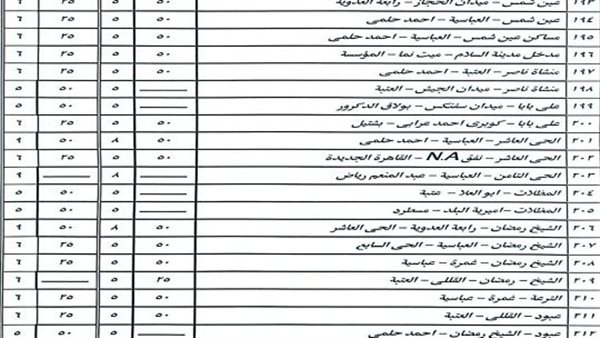 ١٩٣ عين شمس – ميدان الحجاز – رابعة العدوية ٥٠ ٥ ٢٥ ٦
١٩٤ عين شمس – العباسية – احمد حلمى ٥٠ ٥ ٢٥ ٦
١٩٥ مساكن عين شمس – العباسية – احمد حلمى ٥٠ ٥ ٢٥ ٦
١٩٦ مدخل مدينة السلام – ميت نما – المؤسسة ٥٠ ٥ ٢٥ ٦
١٩٧ منشاة ناصر – العتبة – احمد حلمى ٥٠ ٥ ٢٥ ٦
١٩٨ منشاة ناصر – ميدان الجيش – العتبة — ٥ ٥٠ ٥
١٩٩ على بابا – ميدان سفنكس – بولاق الدكرور — ٥ ٥٠ ٥
٢٠٠ على بابا – كوبرى احمد عرابى – بشتيل ٥٠ ٥ ٢٥ ٦
٢٠١ الحى العاشر – العباسية – احمد حلمى ٥٠ ٨ ٥٠ ٩
٢٠٢ الحى العاشر – نفق N.A – القاهرة الجديدة ٥٠ ٥ ٢٥ ٦
٢٠٣ الحى الثامن – العباسية – عبد المنعم رياض — ٨ — ٩
٢٠٤ المظلات – ابو العلا – عتبة — ٥ ٥٠ ٥
٢٠٥ المظلات – اميرية البلد – مسطرد — ٥ ٥٠ ٥
٢٠٦ الشيخ رمضان – رابعة العدوية – الحى العاشر ٥٠ ٨ ٥٠ ٩
٢٠٧ الشيخ رمضان – العباسية – الحى السابع ٥٠ ٥ ٢٥ ٦
٢٠٨ الشيخ رمضان – غمرة – عباسية ٥٠ ٥ ٢٥ ٦
٢٠٩ الشيخ – رمضان – القللى – العتبة ٢٥ ٥ — ٦
٢١٠ الترعة – غمرة – عباسية ٥٠ ٥ ٢٥ ٦
٢١١ عبود – القللى – العتبة ٥٠ ٥ ٢٥ ٦
٢١٢ عبود – الشيخ رمضان – احمد حلمى — ٥ ٥٠ ٥